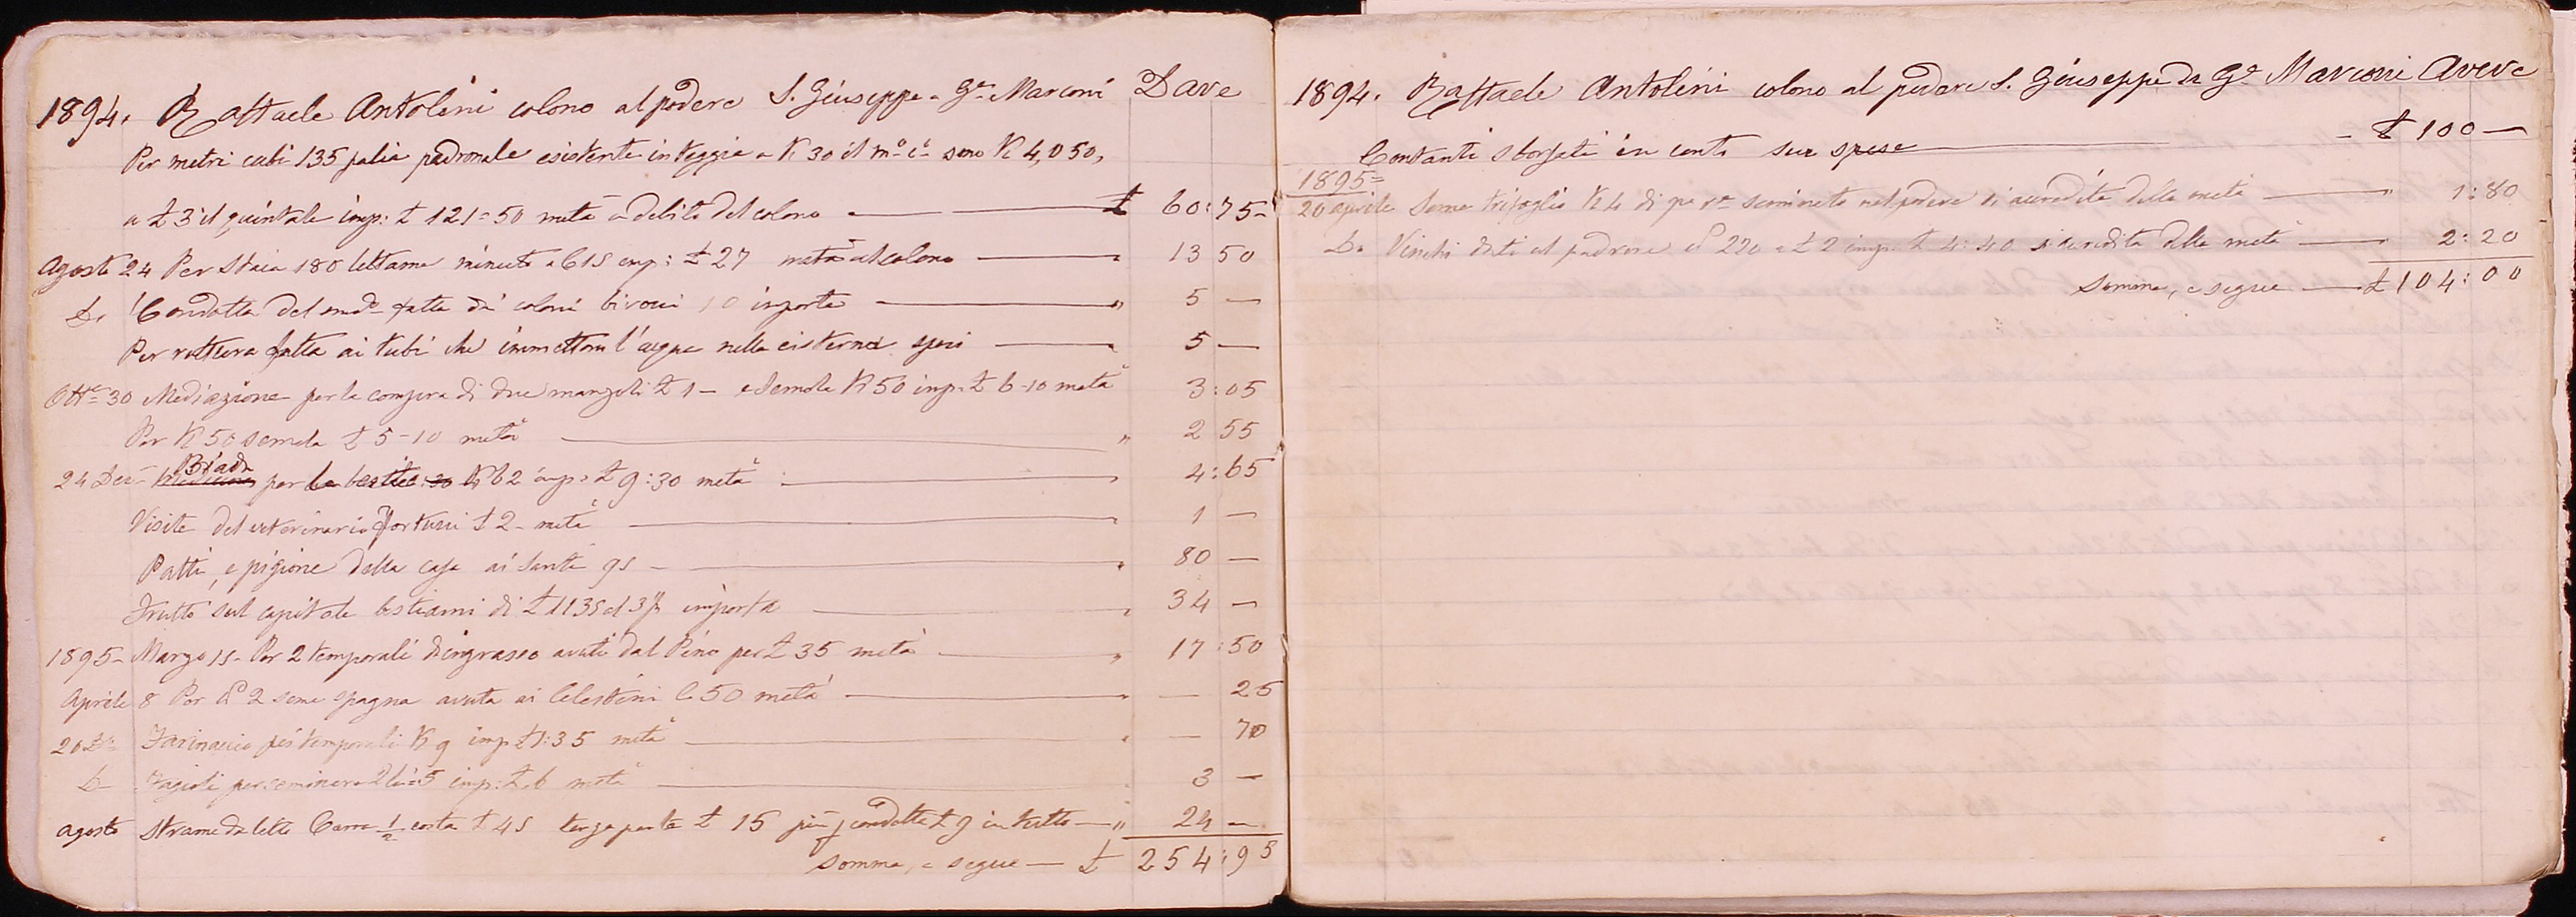 1894. Raffaele Antolini colono al podere S. Giuseppe - Ga. Marconi Dave
Per metri cubi 135 palia padronale esistente in teggia a K 30 il mo. co. sono K 4,050,
a £ 3 il quintale imp: £ 121=50 metà a debito del colono — £ 60:75
Agosto 24 Per staia 180 lettame minuto a C 15 imp: £ 27 metà al colono — 13 50
D. Condotta del md. fatta dai coloni birocci 10 importa — " 5 —
Per rottura fatta ai tubi che immettono l'acqua nella cisterna spesi — 5 —
Otte. 30 Mediazione per la compra di due manzoli £ 1 — e Semola K 50 imp. £ 6-10 metà 3:05
Per K 50 semola £ 5-10 metà — " 2 55
24 Dec. Biada per K 62 imp: £ 9:30 metà — 4:65
Visite del veterinario £ 2 - metà — 1 —
Patti, e pigione della casa ai Santi 95 — 80 —
Frutto sul capitale bestiami di £ 1135 al 3% importa — 34 —
1895 - Marzo 15 - Per 2 temporali d'ingrasso avuti dal Pino per £ 35 metà — " 17:50
Aprile 8 Per 2 seme spagna avuta ai Celestini C 50 metà — 25
20 Do. Farinaccio pei temporali K 9 imp £ 1:35 metà — 70
D. Fagioli per seminare imp: £ 6 metà — 3 —
Agosto Strame da letto Carra 1/2 costa £ 45 terza parte £ 15 più condotta £ 9 in tutto — " 24 —
Somma, e segue — £ 254:95
1894. Raffaele Antolini colono al podere S. Giuseppe da Ga. Marconi Avere
Contanti sborsati in conto sue spese — £ 100 —
1895=
20 aprile Seme trifoglio K 4 di seminato nel podere si accredita della metà — " 1:80
D. Vinchi dati al padrone 220 a £ 2 imp. £ 4:40 si accredita della metà — 2:20
Somma, e segue — £ 104:00